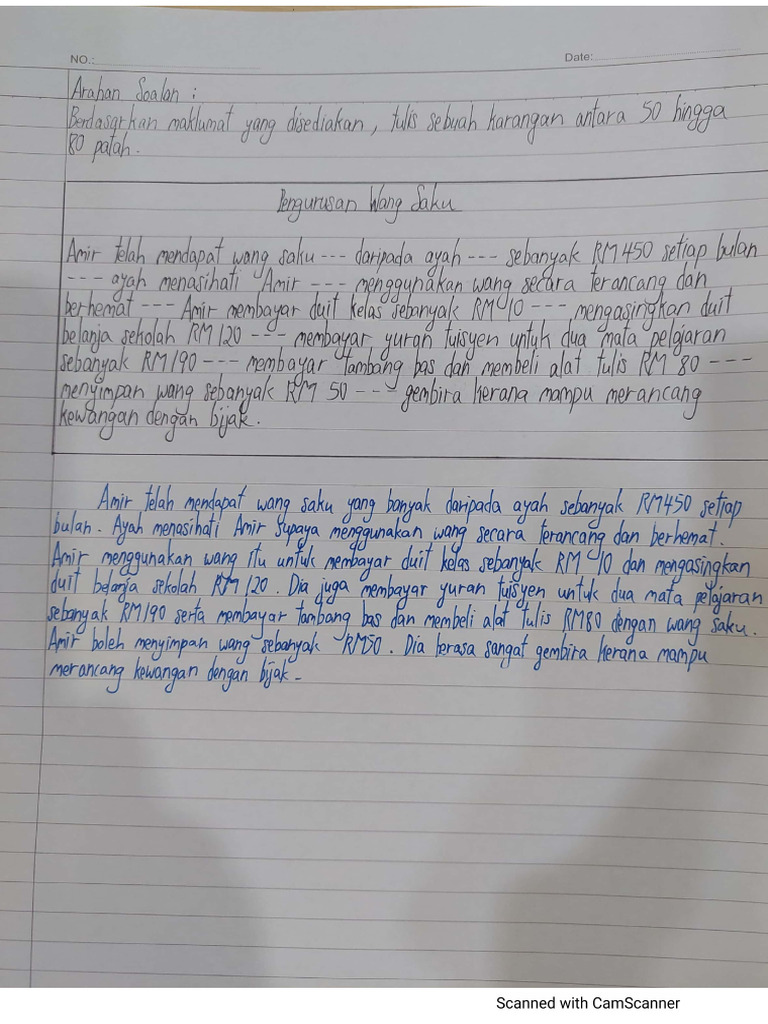 NO.:
Date:
Arahan Soalan :
Berdasarkan maklumat yang disediakan, tulis sebuah karangan antara 50 hingga
80 patah.
Pengurusan Wang Saku
Amir telah mendapat wang saku --- daripada ayah --- sebanyak RM450 setiap bulan
--- ayah menasihati Amir --- menggunakan wang secara terancang dan
berhemat --- Amir membayar duit kelas sebanyak RM 10 --- mengasingkan duit
belanja sekolah RM 120 --- membayar yuran tuisyen untuk dua mata pelajaran
sebanyak RM 190 --- membayar tambang bas dan membeli alat tulis RM 80 ---
menyimpan wang sebanyak RM 50 --- gembira kerana mampu merancang
kewangan dengan bijak.
Amir telah mendapat wang saku yang banyak daripada ayah sebanyak RM450 setiap
bulan. Ayah menasihati Amir supaya menggunakan wang secara terancang dan berhemat.
Amir menggunakan wang itu untuk membayar duit kelas sebanyak RM 10 dan mengasingkan
duit belanja sekolah RM 120. Dia juga membayar yuran tuisyen untuk dua mata pelajaran
sebanyak RM190 serta membayar tambang bas dan membeli alat tulis RM80 dengan wang saku.
Amir boleh menyimpan wang sebanyak RM50. Dia berasa sangat gembira kerana mampu
merancang kewangan dengan bijak.
Scanned with CamScanner